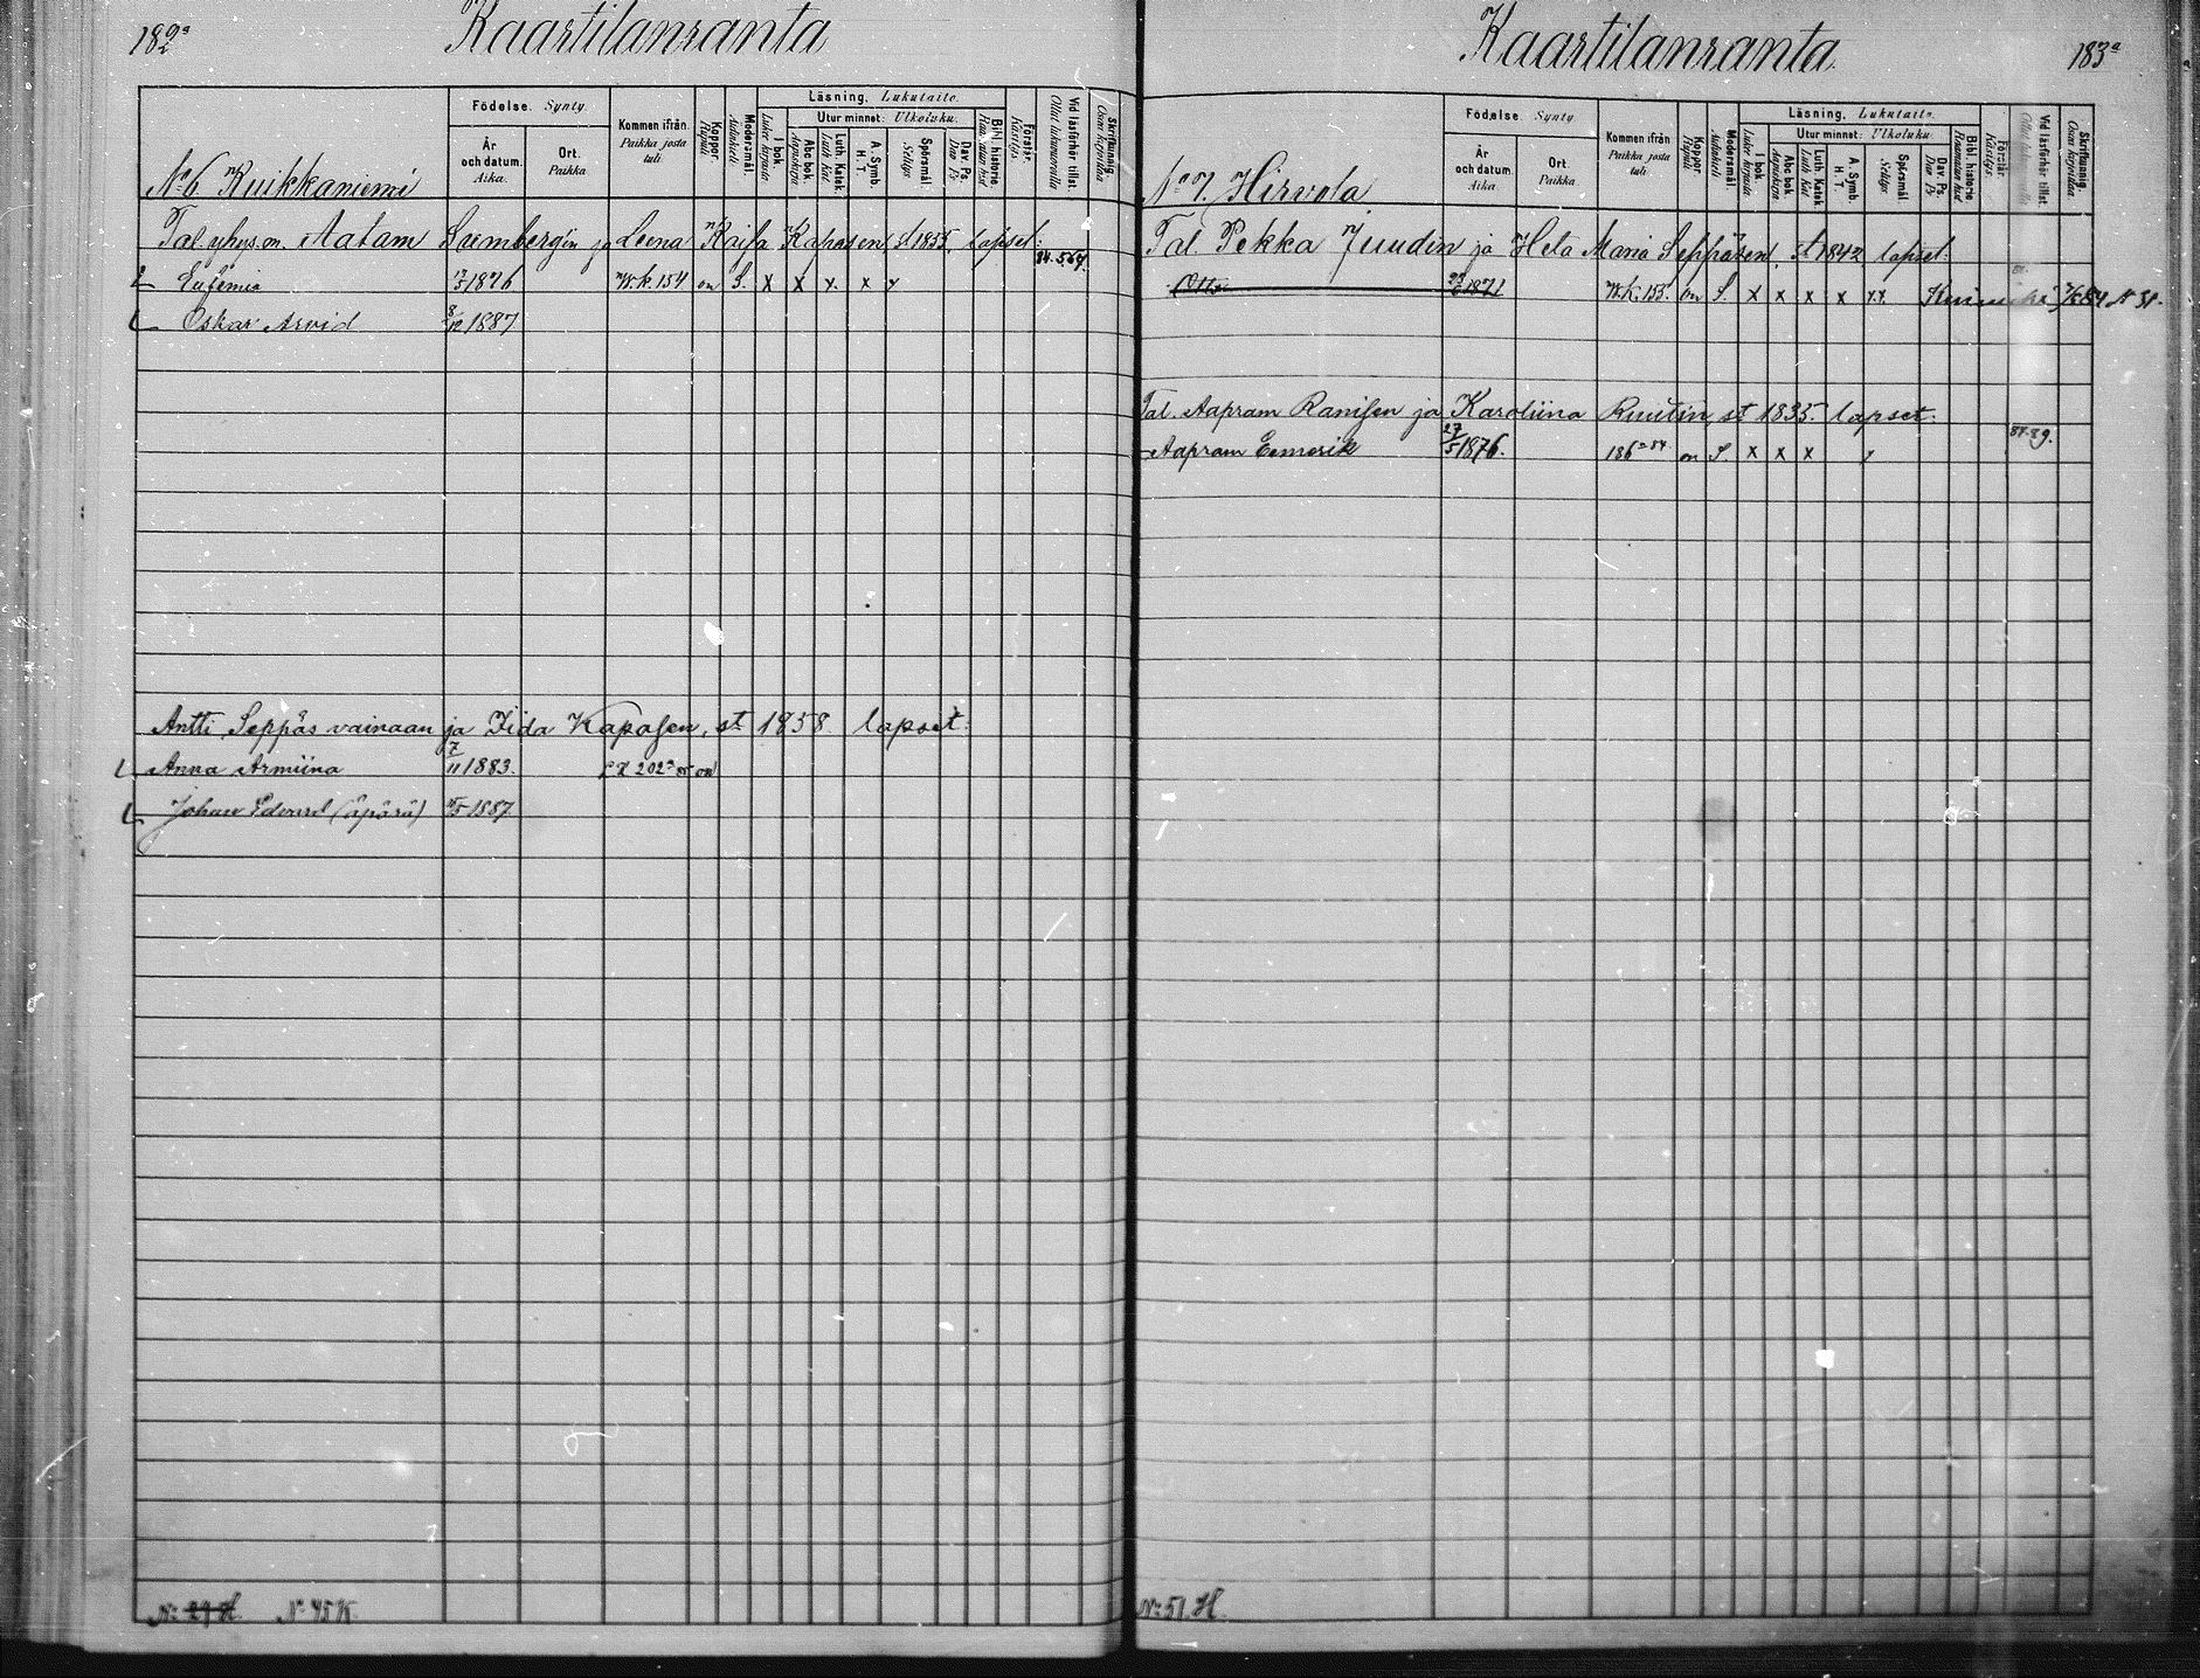 182a
Kaartilanranta
No 6 Kuikkaniemi
Födelse. Synty.
År och datum. Aika.
Ort. Paikka
Kommen ifrån. Paikka josta tuli
Koppor. Rupuli
Modersmål. Äidinkieli
Läsning. Lukutaito.
I bok. Lukee kirjasta
Utur minnet: Ulkoluku.
Abc bok. Aapiskirja
Luth. Katek. Luth. Kat.
A. Symb. H. T.
Spörsmål. Selitys
Dav. Ps. Dav. Ps.
Bibl. historie.
Förstår. Käsitys.
Vid läsförhör tillst. Ollut lukuvuorolla
Skriftkunnig. Osaa kirjoittaa
Tal. yhys.m. Aatam Srembergin ja Leena Kaisa Kapasen, st 1855, lapset:
Eufemia 1876 W.k. 154 on S. x x x x x 84. 567.
Oskar Arvid 8/12 1887
Antti Seppäs vainaan ja Iida Kapasen, st 1858 lapset:
Anna Armiina 7/11 1883. 202a on
Johan Edvard (äpärä) 1887
No 29 H. No 45 K.
Kaartilanranta
183a
No 7. Hirvola
Födelse. Synty
År och datum. Aika
Ort. Paikka.
Kommen ifrån Paikka josta tuli
Koppor. Rupuli
Modersmål. Äidinkieli
Läsning. Lukutaito.
I bok. Lukee kirjasta
Utur minnet: Ulkoluku.
Abc bok. Aapiskirja
Luth. Katek. Luth. Kat
A. Symb. H. T
Spörsmål Selitys
Dav. Ps. Dav. Ps
Bibl. historie
Förstår. Käsitys.
Vid läsförhör tillst.
Skriftkunnig. Osaa kirjoittaa
Tal. Pekka Juudin ja Heta Maria Seppäsen, st 1842 lapset:
Otto 1871 W.k. 155. on S. x x x x x.x. 84 N 31.
Tal. Aapram Ranisen ja Karoliina Ruutin, st 1835. lapset:
Aapram Eemerik 27/5 1876. 186a 84 on S. x x x 87. 89.
No 51. H.